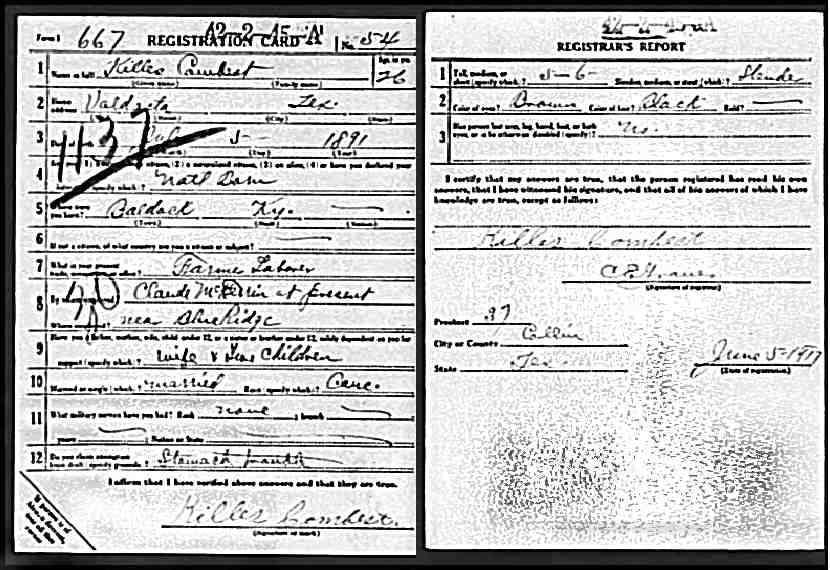 Form 1 667 REGISTRATION CARD 42-2-45-A No. 54
1 Name in full Killes Combest Age, in yrs 26
(Given name) (Family name)
2 Home address Tex
(No.) (Street) (City) (State)
3 Date of birth 5 1891
(Month) (Day) (Year)
1137
4 Are you (1) a natural-born citizen, (2) a naturalized citizen, (3) an alien, (4) or have you declared your
intention (specify which)? Natl Born
5 Where were you born? Baldock Ky.
(Town) (State) (Nation)
6 If not a citizen, of what country are you a citizen or subject?
7 What is your present trade, occupation, or office? Farme Laborer
8 By whom employed? Claude at present
Where employed? near Blue Ridge
9 Have you a father, mother, wife, child under 12, or a sister or brother under 12, solely dependent on you for
support (specify which)? wife & Children
10 Married or single (which)? married Race (specify which)? Cauc.
11 What military service have you had? Rank none ; branch
years ; Nation or State
12 Do you claim exemption from draft (specify grounds)? Stomach
I affirm that I have verified above answers and that they are true.
Killes Combest.
(Signature or mark)
42-2-45-A
REGISTRAR'S REPORT
1 Tall, medium, or short (specify which)? 5-6- Slender, medium, or stout (which)? Slende
2 Color of eyes? Brown Color of hair? Black Bald?
3 Has person lost arm, leg, hand, foot, or both eyes, or is he otherwise disabled (specify)? No.
I certify that my answers are true, that the person registered has read his own
answers, that I have witnessed his signature, and that all of his answers of which I have
knowledge are true, except as follows:
Killes Combest
(Signature of registrar)
Precinct 37
City or County Collin
State Tex. June 5-1917
(Date of registration)